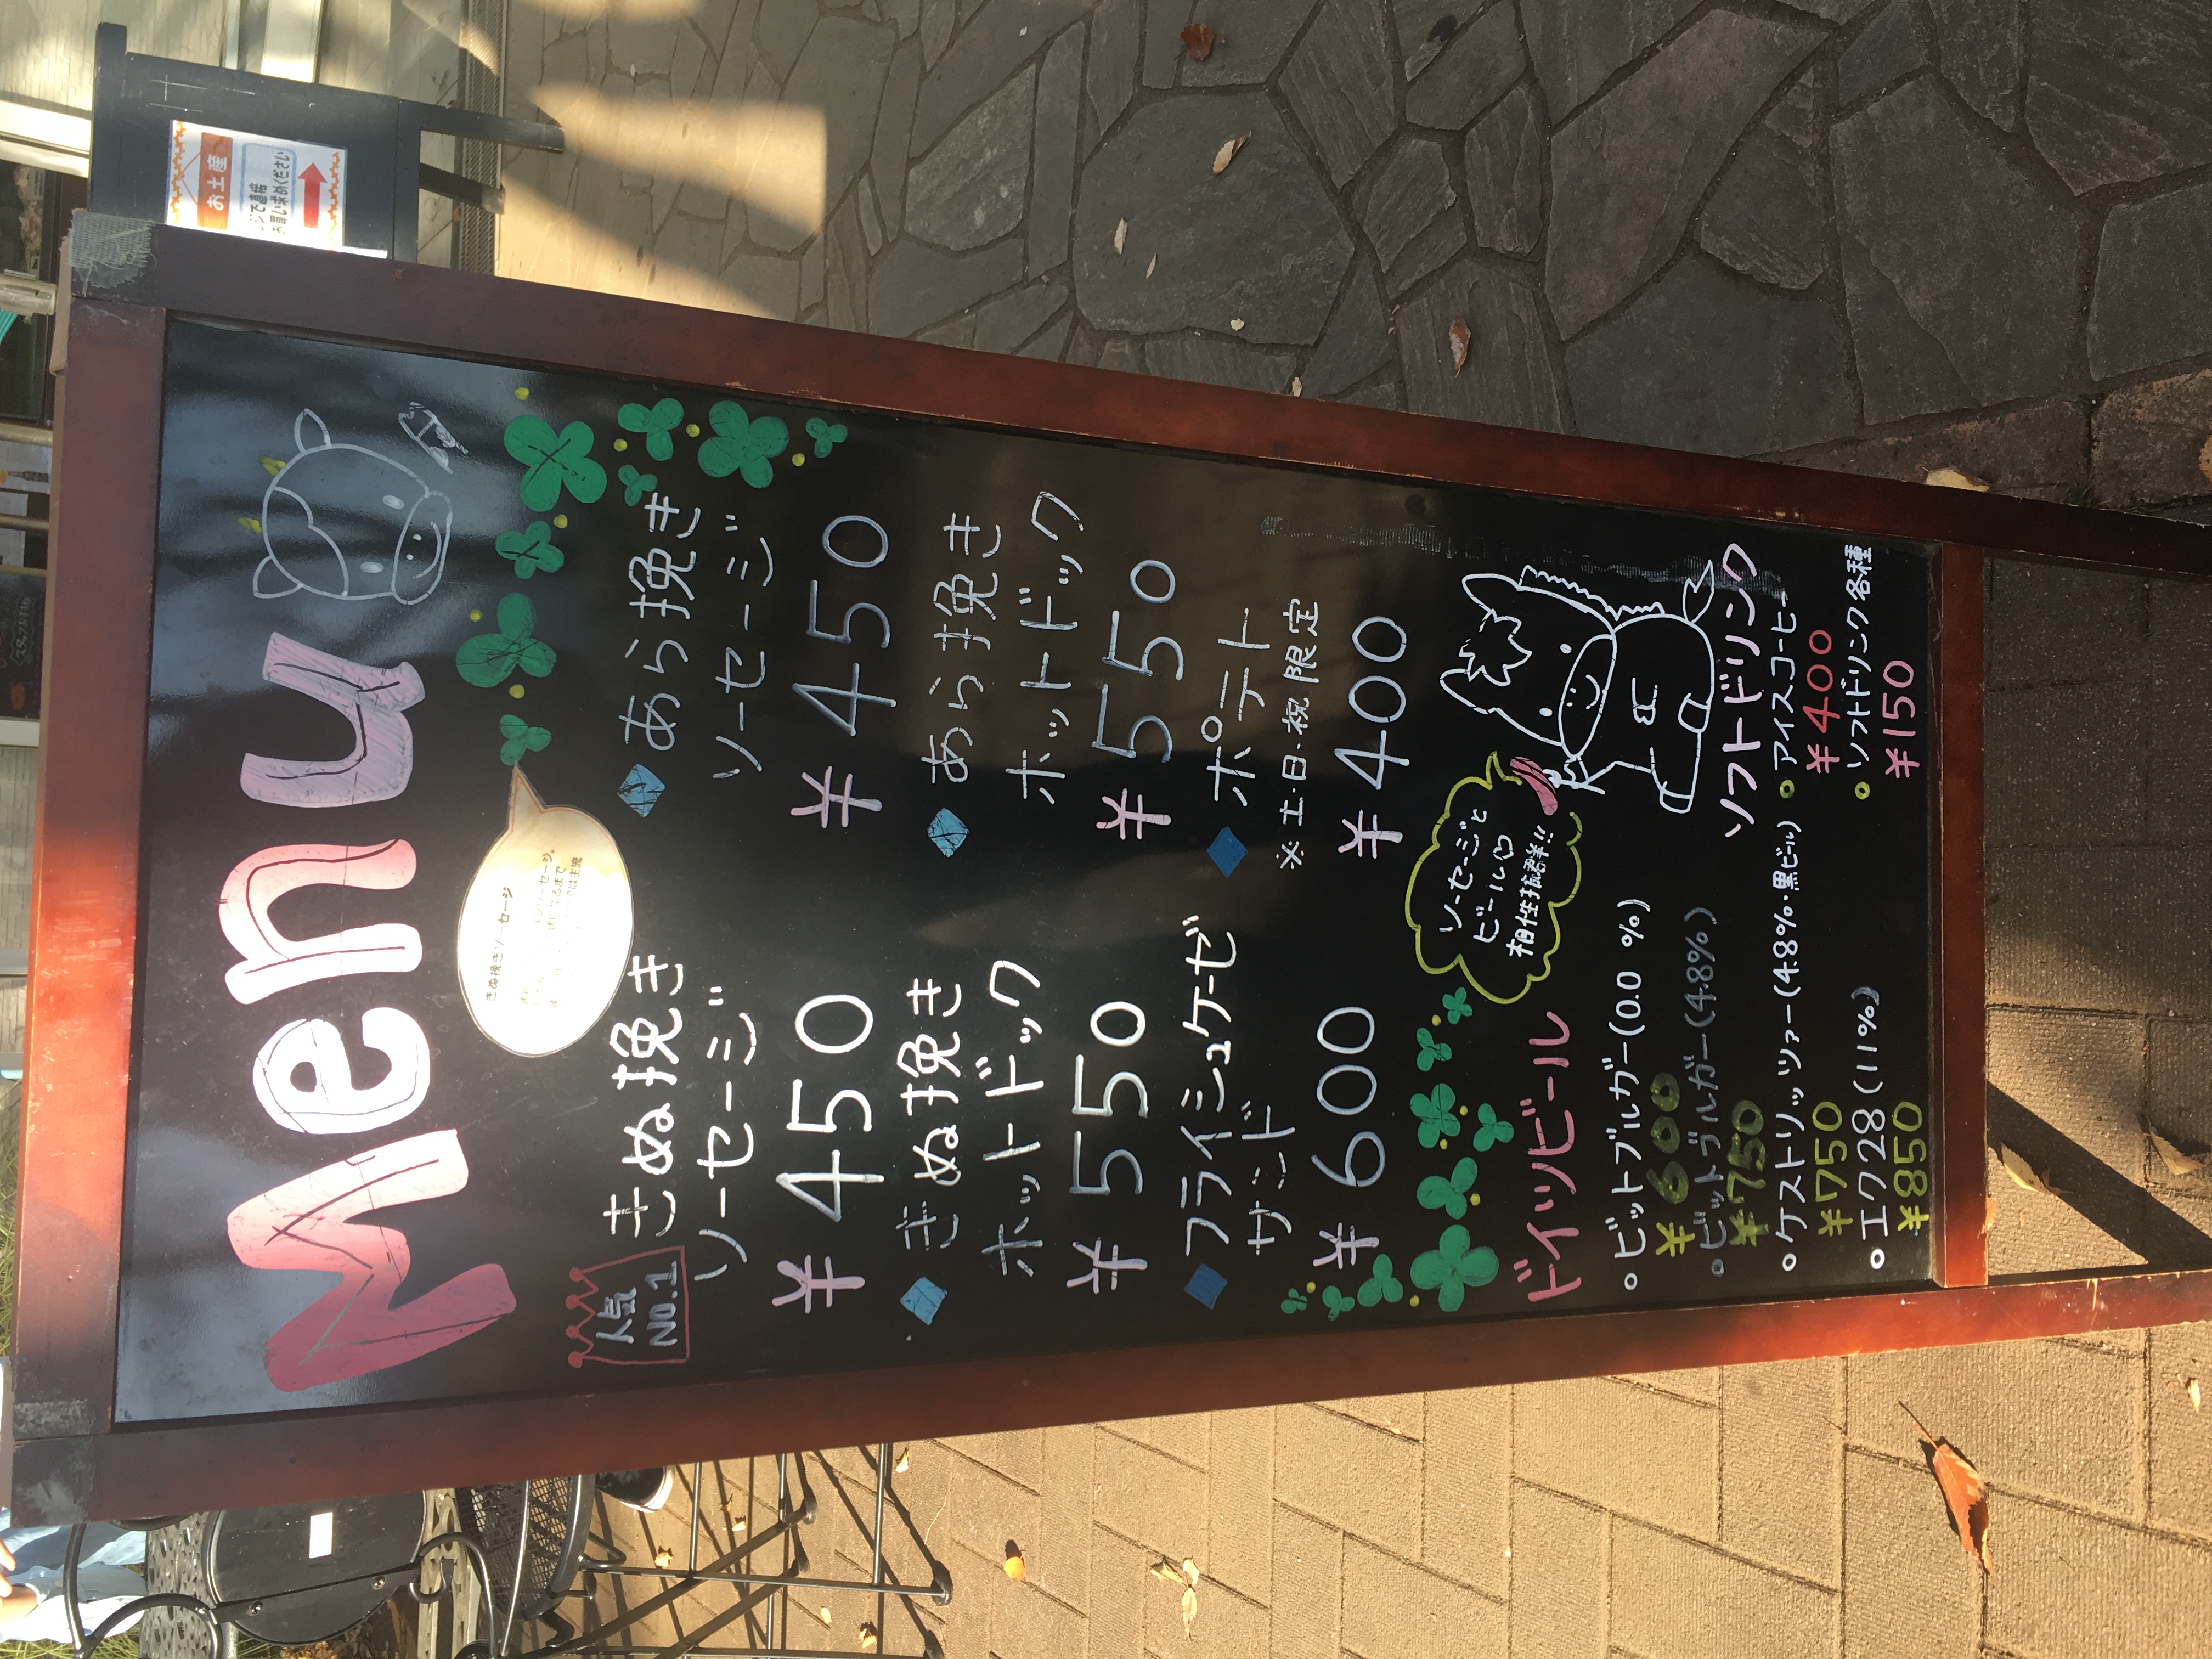 Menu
きぬ挽きソーセージ
人気
NO.1
きぬ挽き
ソーセージ
¥450
あら挽き
ソーセージ
¥450
きぬ挽き
ホットドック
¥550
あら挽き
ホットドック
¥550
フライシュケーゼ
サンド
¥600
ポテト
※土・日・祝限定
¥400
ソーセージと
ビールの
相性抜群!!
ドイツビール
ビットブルガー(0.0%)
¥600
ビットブルガー(4.8%)
¥750
ケストリッツァー(4.8%・黒ビール)
¥750
エク28(11%)
¥850
ソフトドリンク
アイスコーヒー
¥400
ソフトドリンク各種
¥150
お土産
お買い求めください